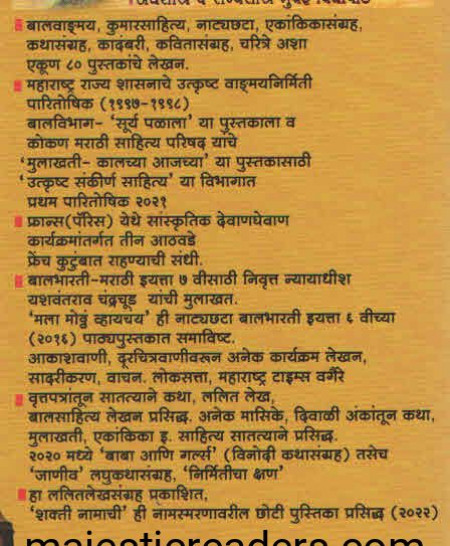 बालवाङ्मय, कुमारसाहित्य, नाट्यछटा, एकांकिकासंग्रह,
कथासंग्रह, कादंबरी, कवितासंग्रह, चरित्रे अशा
एकूण ८० पुस्तकांचे लेखन.
महाराष्ट्र राज्य शासनाचे उत्कृष्ट वाङ्मयनिर्मिती
पारितोषिक (१९९७-१९९८)
बालविभाग- 'सूर्य पळाला' या पुस्तकाला व
कोकण मराठी साहित्य परिषद यांचे
'मुलाखती- कालच्या आजच्या' या पुस्तकासाठी
'उत्कृष्ट संकीर्ण साहित्य' या विभागात
प्रथम पारितोषिक २०२१
फ्रान्स(पॅरिस) येथे सांस्कृतिक देवाणघेवाण
कार्यक्रमांतर्गत तीन आठवडे
फ्रेंच कुटुंबात राहण्याची संधी.
बालभारती-मराठी इयत्ता ७ वीसाठी निवृत्त न्यायाधीश
यशवंतराव चंद्रचूड यांची मुलाखत.
'मला मोठ्ठं व्हायचय' ही नाट्यछटा बालभारती इयत्ता ६ वीच्या
(२०१६) पाठ्यपुस्तकात समाविष्ट.
आकाशवाणी, दूरचित्रवाणीवरून अनेक कार्यक्रम लेखन,
सादरीकरण, वाचन. लोकसत्ता, महाराष्ट्र टाइम्स वगैरे
वृत्तपत्रातून सातत्याने कथा, ललित लेख,
बालसाहित्य लेखन प्रसिद्ध. अनेक मासिके, दिवाळी अंकांतून कथा,
मुलाखती, एकांकिका इ. साहित्य सातत्याने प्रसिद्ध.
२०२० मध्ये 'बाबा आणि गर्ल्स' (विनोदी कथासंग्रह) तसेच
'जाणीव' लघुकथासंग्रह, 'निर्मितीचा क्षण'
हा ललितलेखसंग्रह प्रकाशित,
'शक्ती नामाची' ही नामस्मरणावरील छोटी पुस्तिका प्रसिद्ध (२०२२)
majesticreaders.com